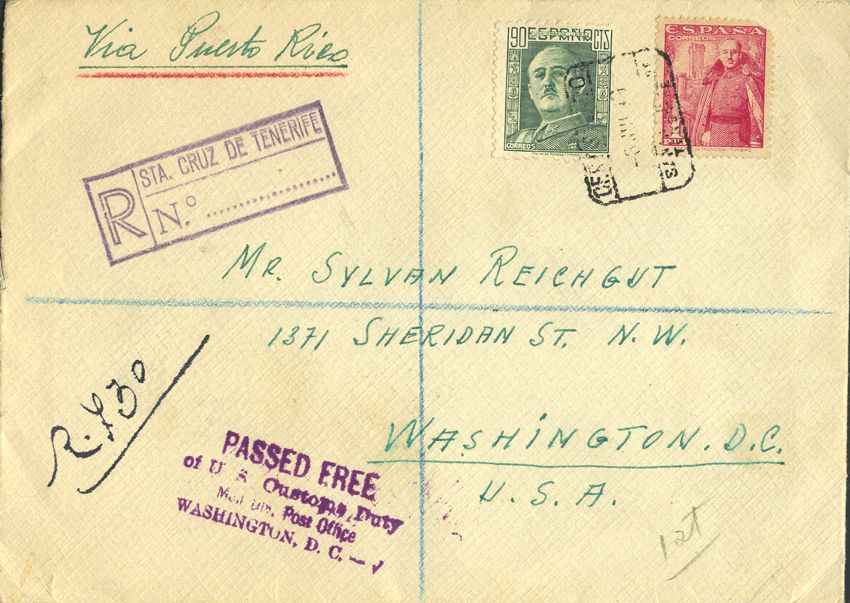 Via Puerto Rico
90 ESPAÑA CTS
CORREOS
ESPAÑA
CORREOS
STA. CRUZ DE TENERIFE
R N.º
MR. SYLVAN REICHGUT
1371 SHERIDAN ST. N.W.
WASHINGTON. D.C.
U.S.A.
PASSED FREE
of U S Customs Duty
Post Office
WASHINGTON, D. C.
1st